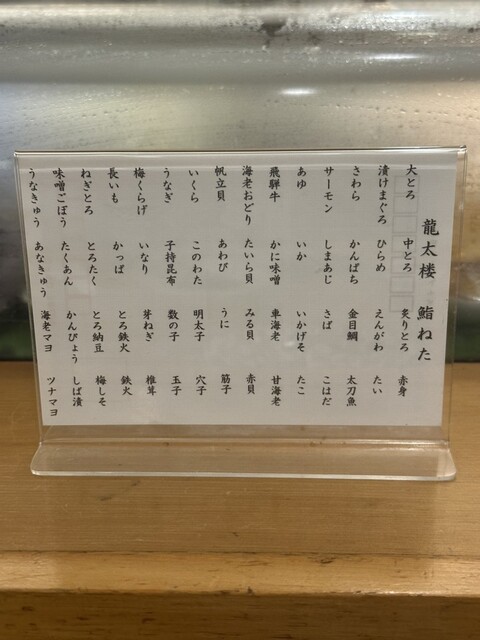 龍太楼 鮨ねた
大とろ 中とろ 炙りとろ 赤身
漬けまぐろ ひらめ えんがわ たい
さわら かんぱち 金目鯛 太刀魚
サーモン しまあじ さば こはだ
あゆ いか いかげそ たこ
飛騨牛 かに味噌 車海老 甘海老
海老おどり たいら貝 みる貝 赤貝
帆立貝 あわび うに 筋子
いくら このわた 明太子 穴子
うなぎ 子持昆布 数の子 玉子
梅くらげ いなり 芽ねぎ 椎茸
長いも かっぱ とろ鉄火 鉄火
ねぎとろ とろたく とろ納豆 梅しそ
味噌ごぼう たくあん かんぴょう しば漬
うなきゅう あなきゅう 海老マヨ ツナマヨ